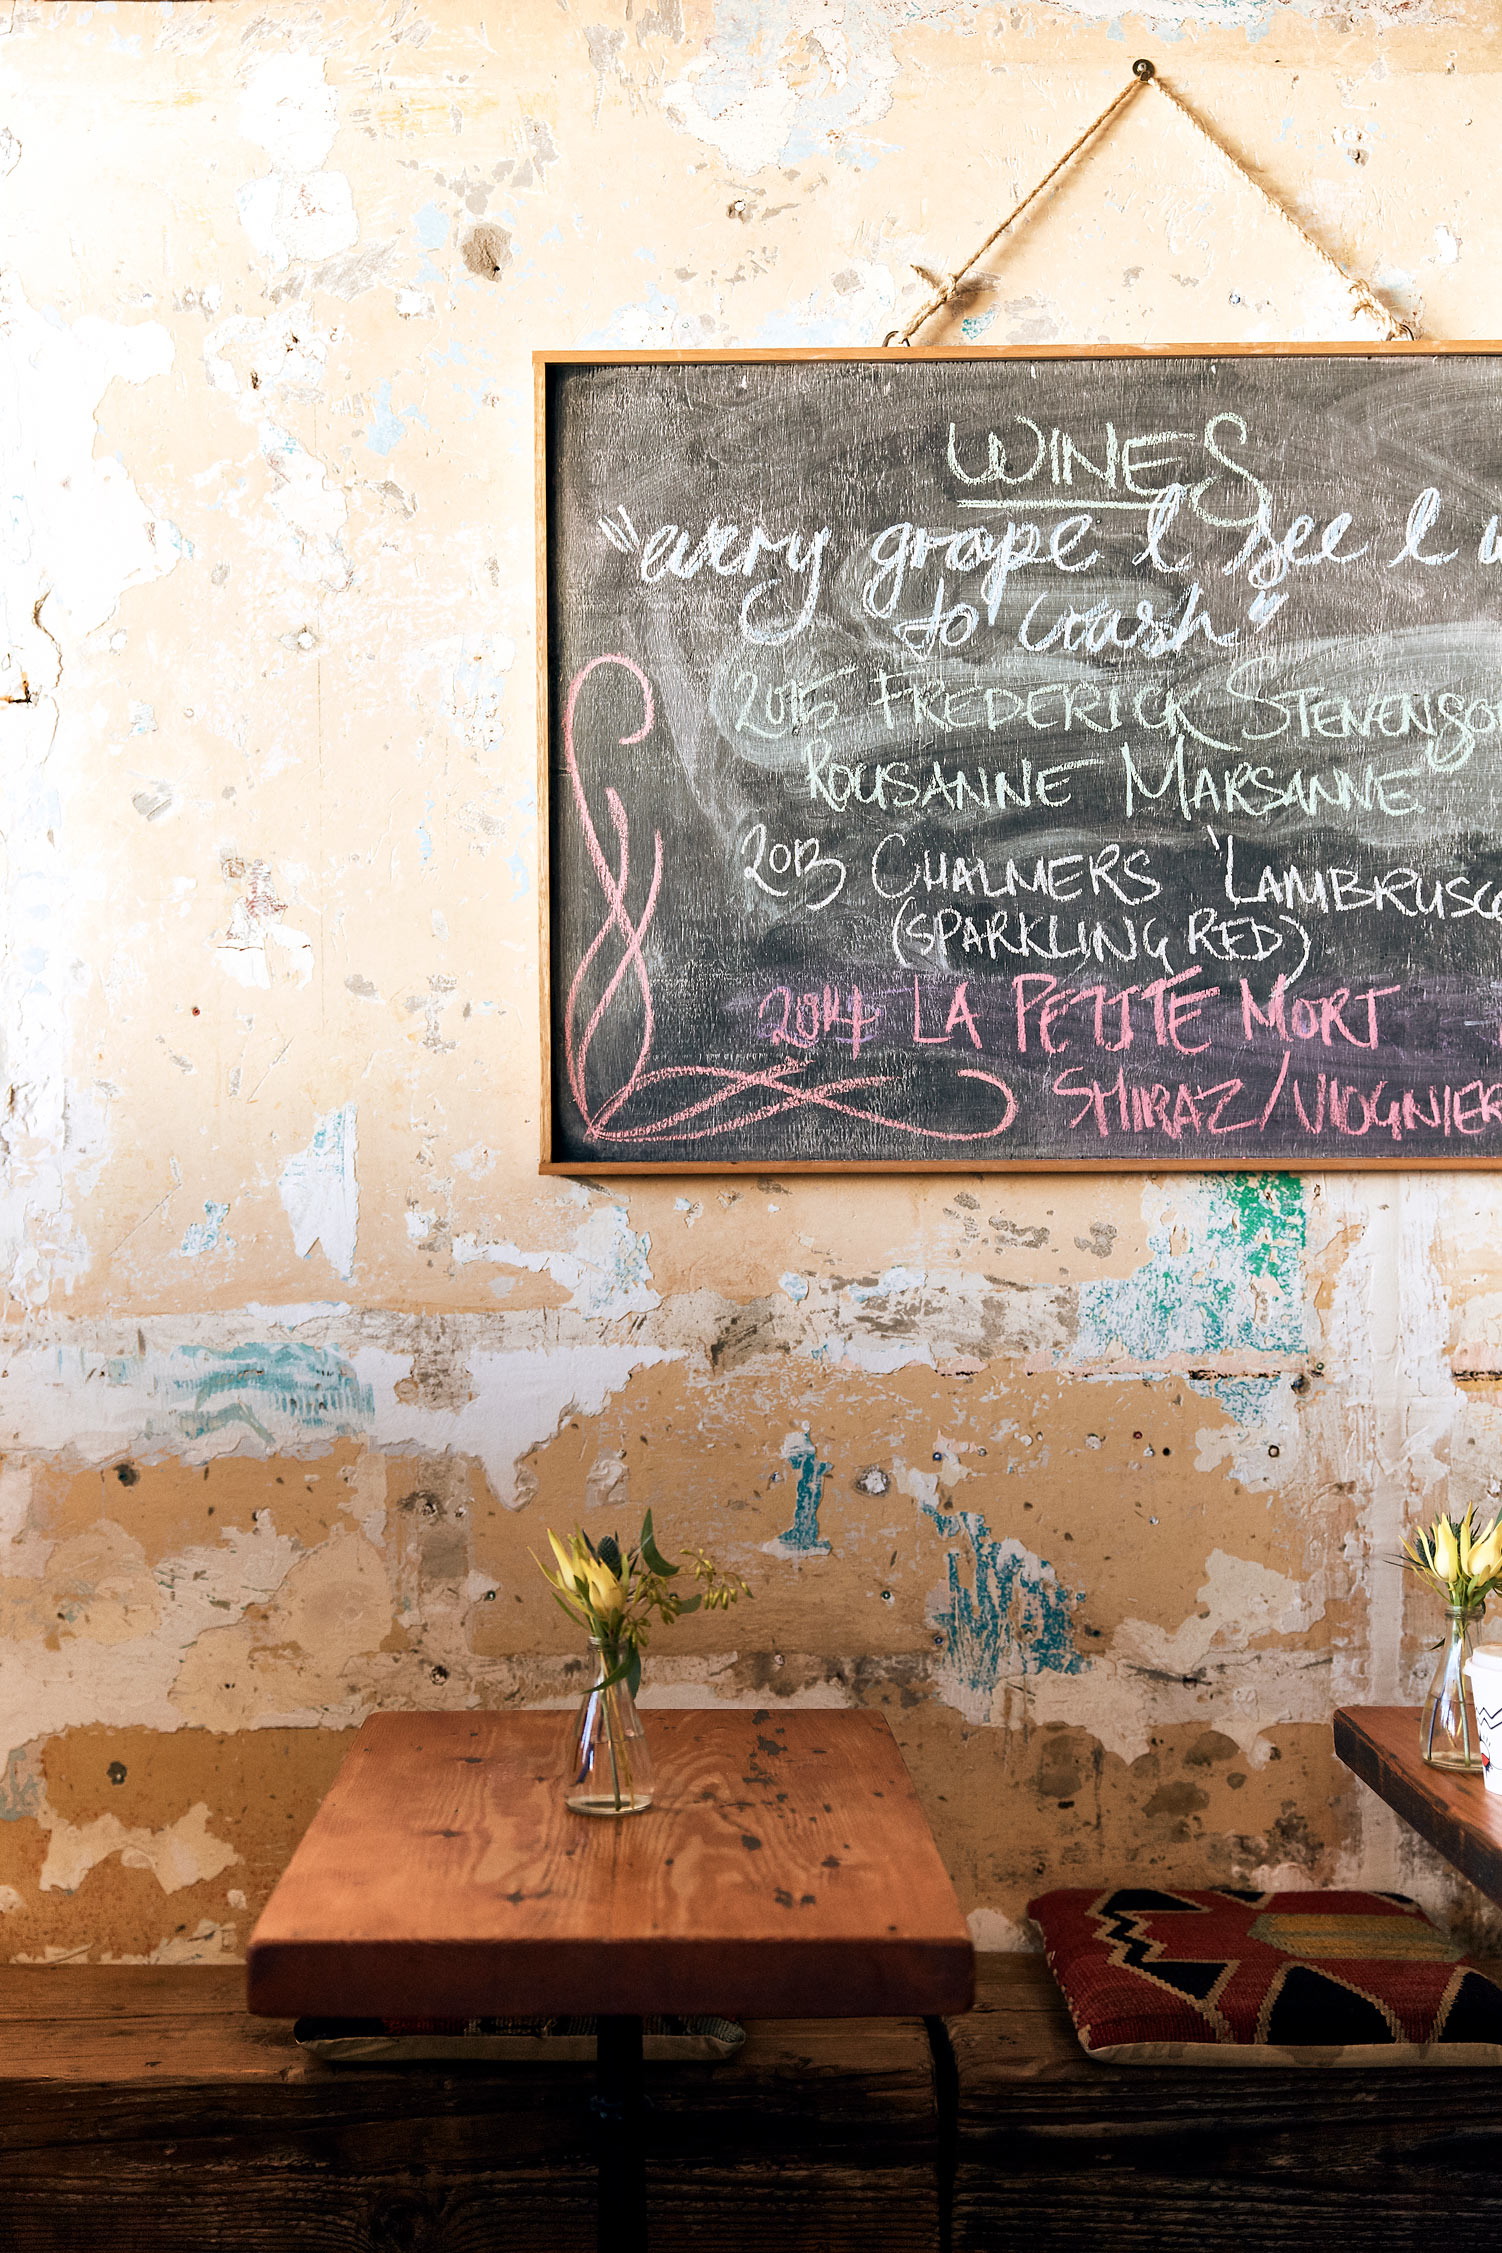 WINES
"every grape I see I
to crush"
2015 FREDERICK STEVENSO
ROUSANNE MARSANNE
2013 CHALMERS 'LAMBRUSC
(SPARKLING RED)
2014 LA PETITE MORT
SHIRAZ/VIOGNIER